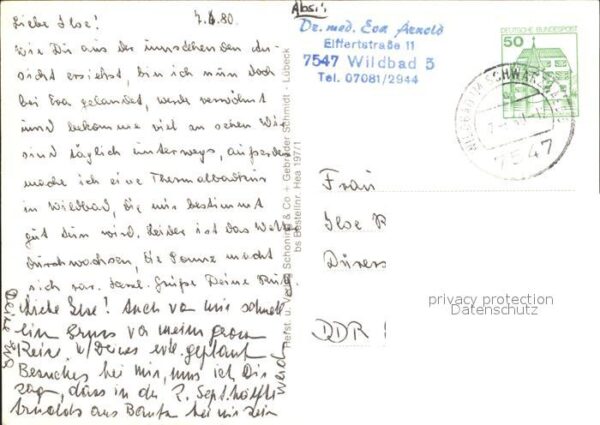 Liebe Ilse! 7.6.80.
Wie Du aus der umstehenden An-
sicht ersiehst, bin ich nun doch
bei Eva gelandet, werde verwöhnt
und bekomme viel zu sehen. Wir
sind täglich unterwegs, außerdem
mache ich eine Thermalbadkur
in Wildbad, die mir bestimmt
gut tun wird. Leider ist das Wetter
durchwachsen, die Sonne macht
sich rar. Herzl. Grüße Deine Ruth
Liebe Ilse! Auch von mir schnell
ein Gruss vor meiner
w/Deines evtl. geplanten
Besuches bei mir, muss ich Dir
sagen, dass in der 2. Septhälfte
Arnolds aus bei mir sein
werden
Deine Eva
Abs.:
Dr. med. Eva Arnold
Eiffertstraße 11
7547 Wildbad 3
Tel. 07081/2944
DEUTSCHE BUNDESPOST
50
7547
Herst. u. Verlag Schöning & Co + Gebrüder Schmidt - Lübeck
bs Bestellnr. Hea 197/1
Frau
Ilse
DDR
privacy protection
Datenschutz